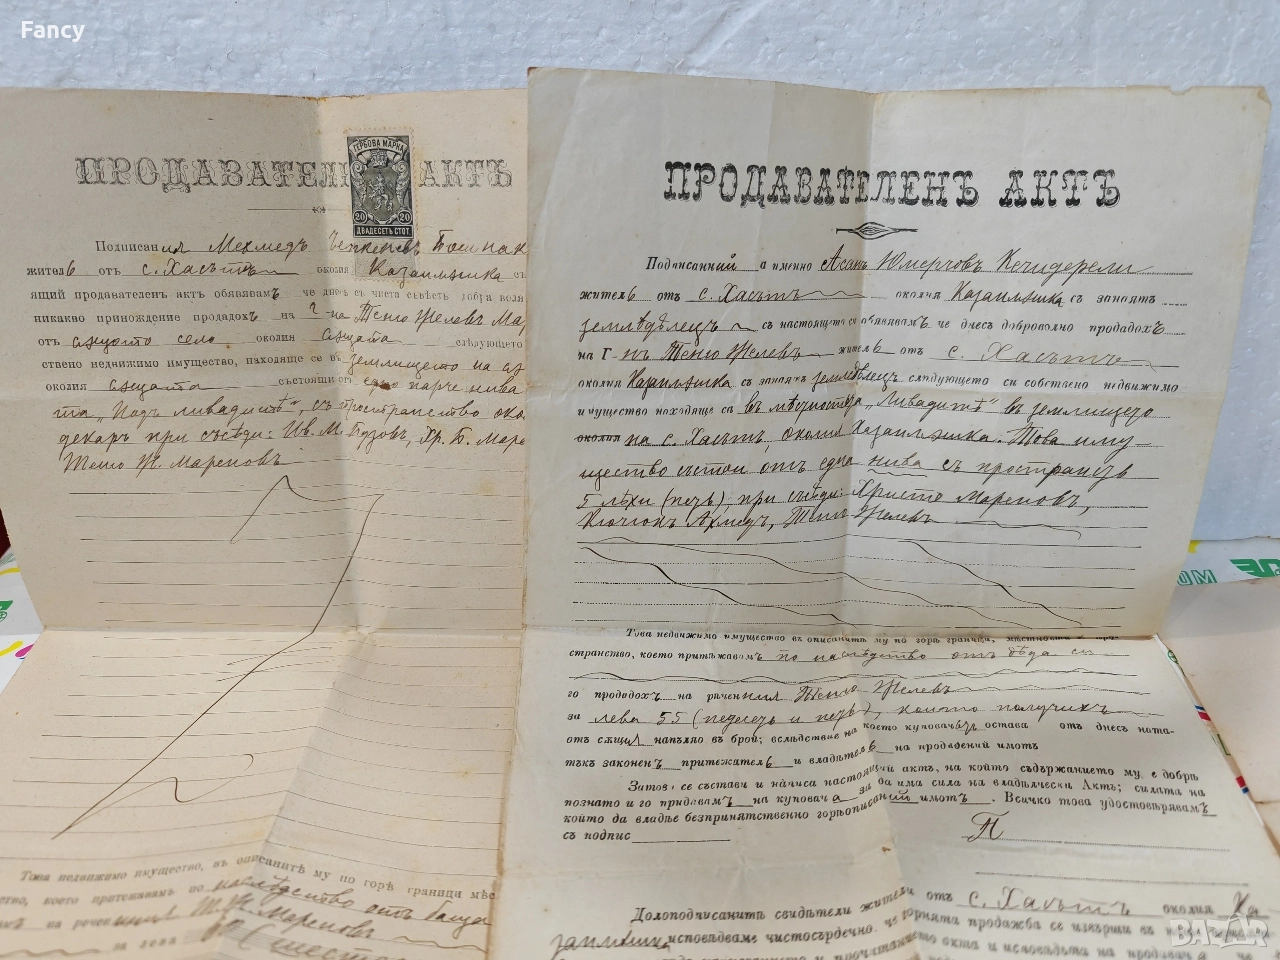 Fancy
ПРОДАВАТЕЛ АКТЪ
ГЕРБОВА МАРКА
20 20
ДВАДЕСЕТЬ СТОТ.
Подписания Мехмедъ
жителъ отъ с. Хасътъ околия Казанлъшка съ
ящий продавателен актъ обявявамъ че днесъ с чиста съвѣсть добра воля
никакво принождение продадохъ на г-на Теню Желевъ Мар
отъ сѫщото село околия сѫщата слѣдующето
ствено недвижимо имущество, находяще се въ землището на
околия сѫщата състояши отъ едно парче нива
та „Подъ ливадитѣ", съ пространство око
декар при съсѣди: Ив. М. Хр. Б. Маре
Теню Ж. Мареновъ
Това недвижимо имущество, въ описанитѣ му по горѣ граници мѣс
ство, което притежавамъ по наслѣдство отъ баща
на речения Т. Ж. Мареновъ
за лева
ПРОДАВАТЕЛЕНЪ АКТЪ
Подписанний а именно Асанъ Юмерчовъ
жителъ отъ с. Хасътъ околия Казанлъшка съ занаятъ
земледѣлецъ съ настоящето си обявявамъ че днесъ доброволно продадохъ
на Г-нъ Теню Желевъ жителъ отъ с. Хасътъ
околия Казанлъшка съ занаятъ земледѣлецъ следующето си собствено недвижимо
имущество находяще са въ мѣстностьта „Ливадитѣ" въ землището
околия на с. Хасътъ, околия Казанлъшка. Това иму-
щество състои отъ една нива съ пространств
5 лѣхи (петь), при съсѣди: Христо Мареновъ,
Кючюкъ Ахмедъ, Теню Желевъ
Това недвижимо имущество въ описанитѣ му по горѣ граници, мѣстность и про-
странство, което притѣжавамъ по наслѣдство отъ дѣда си
го продадохъ на речения Теню Желевъ
за лева 55 (педесеть и петь), които получихъ
отъ сѫщия напълно въ брой; вслѣдствие на което куповачъ остава отъ днесъ ната-
тъкъ законенъ притежателъ и владѣтелъ на продадений имотъ
Затова се състави и написа настоящий актъ, на който съдържанието му е добрѣ
познато и го придавамъ на куповача за да има сила на владѣлчески Актъ; силата на
който да владѣе безпрепятственно горѣописаний имотъ. Всичко това удостовѣрявамъ
съ подпис
П
Долоподписанитѣ свидѣтели жители отъ с. Хасътъ околия Ка
занлъшка исповѣдваме чистосърдечно, че горнята продажба се извърши въ
BAZAR